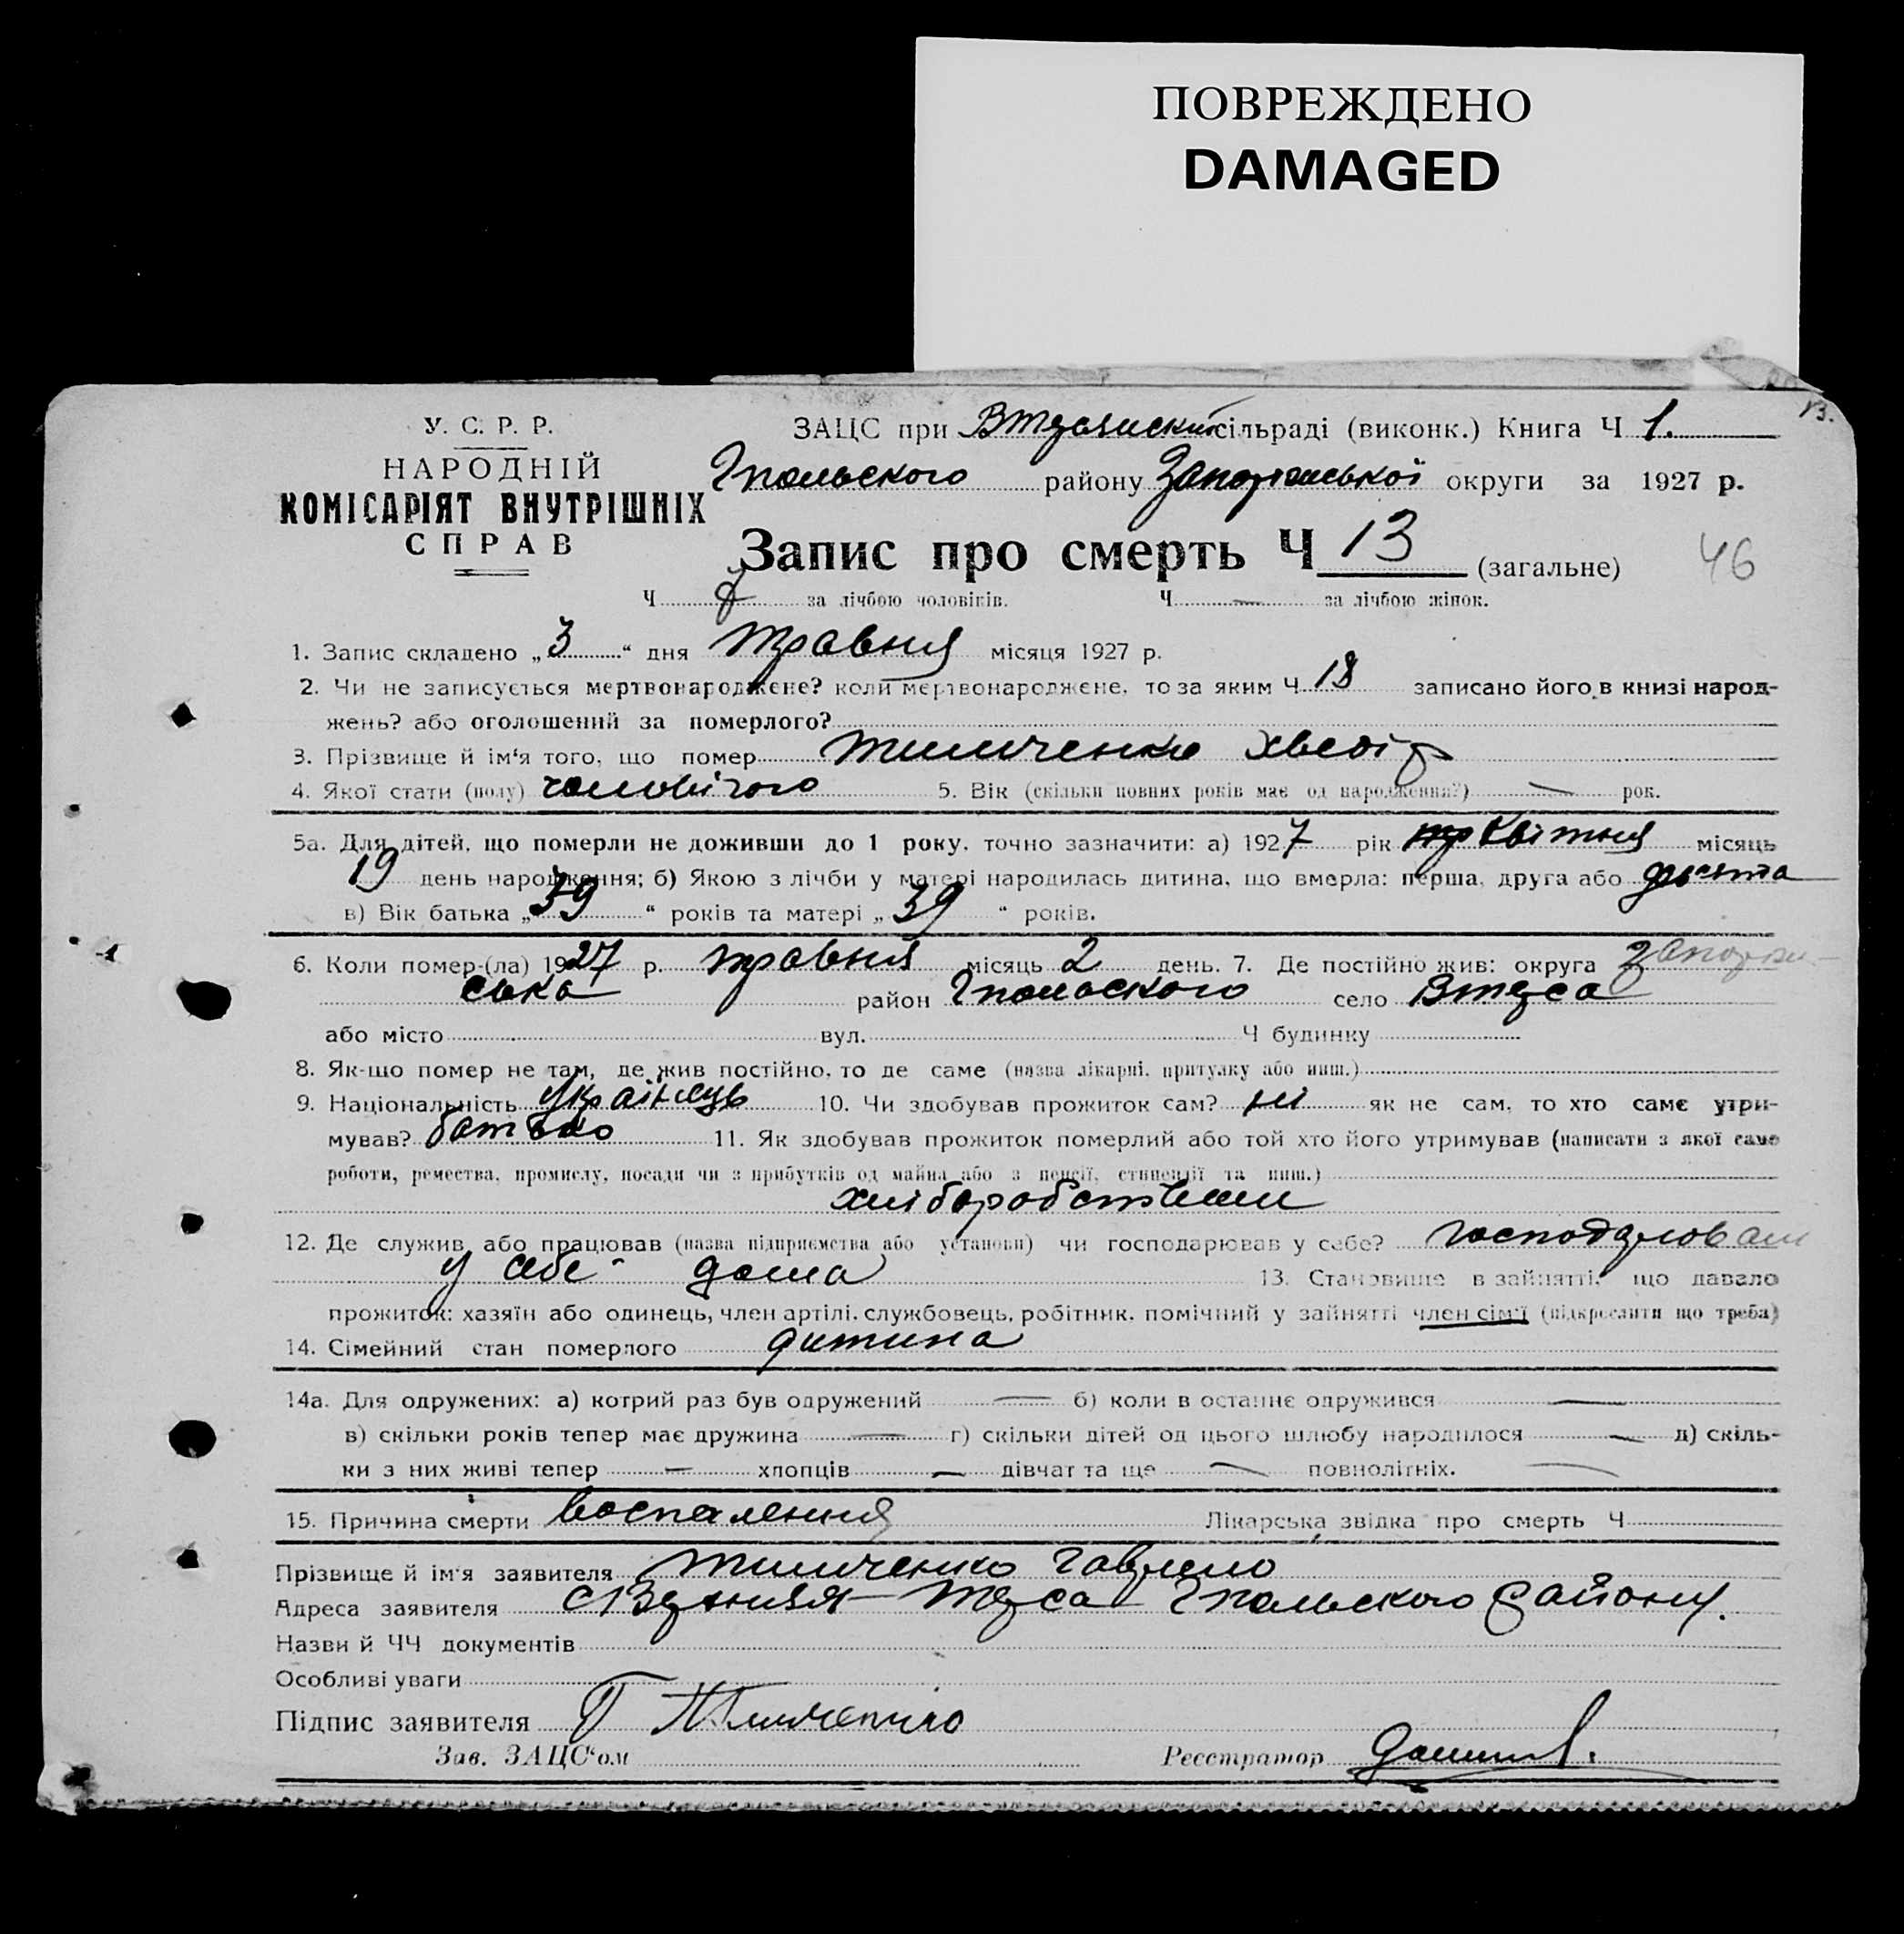 ПОВРЕЖДЕНО
DAMAGED
13.
У. С. Р. Р.
НАРОДНІЙ
КОМІСАРІЯТ ВНУТРІШНІХ
СПРАВ
ЗАЦС при сільраді (виконк.) Книга Ч 1.
району Запоріжської округи за 1927 р.
Запис про смерть Ч 13 (загальне) 46
Ч за лічбою чоловіків. Ч — за лічбою жінок.
1. Запис складено „3“ дня травня місяця 1927 р.
2. Чи не записується мертвонароджене? коли мертвонароджене, то за яким Ч 18 записано його в книзі народ-
жень? або оголошений за померлого?
3. Прізвище й ім'я того, що помер Тимченко Хведір
4. Якої стати (полу) чоловічого 5. Вік (скільки повних років має од народження?) — рок.
5а. Для дітей, що померли не доживши до 1 року, точно зазначити: а) 1927 рік Квітня місяць
19 день народження; б) Якою з лічби у матері народилась дитина, що вмерла: перша, друга або
в) Вік батька „39“ років та матері „39“ років.
6. Коли помер-(ла) 1927 р. травня місяць 2 день. 7. Де постійно жив: округа Запоріж-
ська район село Втерса
або місто вул. Ч будинку
8. Як-що помер не там, де жив постійно, то де саме (назва лікарні, притулку або инш.)
9. Національність Українець 10. Чи здобував прожиток сам? ні як не сам, то хто саме утри-
мував? батько 11. Як здобував прожиток померлий або той хто його утримував (написати з якої саме
роботи, ремества, промислу, посади чи з прибутків од майна або з пенсії, стипендії та инш.)
хліборобством
12. Де служив або працював (назва підприємства або установи) чи господарював у себе? господарював
у себе дома 13. Становище в зайнятті, що давало
прожиток: хазяїн або одинець, член артілі, службовець, робітник, помічний у зайнятті член сім'ї (підкреслити що треба)
14. Сімейний стан померлого дитина
14а. Для одружених: а) котрий раз був одружений — б) коли в останнє одружився —
в) скільки років тепер має дружина — г) скільки дітей од цього шлюбу народилося — д) скіль-
ки з них живі тепер — хлопців — дівчат та ще — повнолітніх. —
15. Причина смерти воспалення Лікарська звідка про смерть Ч
Прізвище й ім'я заявителя Тимченко Гаврило
Адреса заявителя району.
Назви й ЧЧ документів
Особливі уваги
Підпис заявителя Г Тимченко
Зав. ЗАЦС'ом Реєстратор